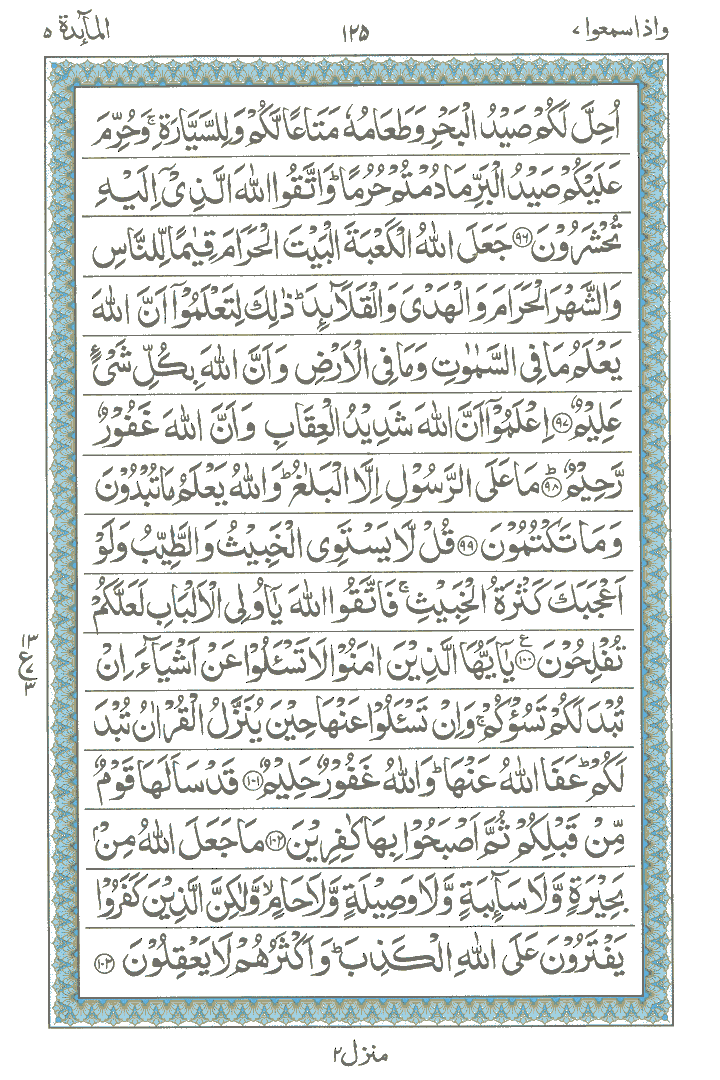 واذا سمعوا ٧
١٢٥
المآىِٕدة ٥
اُحِلَّ لَكُمْ صَيْدُ الْبَحْرِ وَطَعَامُهٗ مَتَاعًا لَّكُمْ وَلِلسَّيَّارَةِ ۚ وَحُرِّمَ
عَلَيْكُمْ صَيْدُ الْبَرِّ مَا دُمْتُمْ حُرُمًا ؕ وَاتَّقُوا اللّٰهَ الَّذِیْۤ اِلَيْهِ
تُحْشَرُوْنَ ﴿٩٦﴾ جَعَلَ اللّٰهُ الْكَعْبَةَ الْبَيْتَ الْحَرَامَ قِيٰمًا لِّلنَّاسِ
وَالشَّهْرَ الْحَرَامَ وَالْهَدْیَ وَالْقَلَآىِٕدَ ؕ ذٰلِكَ لِتَعْلَمُوْۤا اَنَّ اللّٰهَ
يَعْلَمُ مَا فِی السَّمٰوٰتِ وَمَا فِی الْاَرْضِ وَاَنَّ اللّٰهَ بِكُلِّ شَیْءٍ
عَلِيْمٌ ﴿٩٧﴾ اِعْلَمُوْۤا اَنَّ اللّٰهَ شَدِيْدُ الْعِقَابِ وَاَنَّ اللّٰهَ غَفُوْرٌ
رَّحِيْمٌ ﴿٩٨﴾ؕ مَا عَلَی الرَّسُوْلِ اِلَّا الْبَلٰغُ ؕ وَاللّٰهُ يَعْلَمُ مَا تُبْدُوْنَ
وَمَا تَكْتُمُوْنَ ﴿٩٩﴾ قُلْ لَّا يَسْتَوِی الْخَبِيْثُ وَالطَّيِّبُ وَلَوْ
اَعْجَبَكَ كَثْرَةُ الْخَبِيْثِ ۚ فَاتَّقُوا اللّٰهَ يٰۤاُولِی الْاَلْبَابِ لَعَلَّكُمْ
تُفْلِحُوْنَ ﴿١٠٠﴾ع يٰۤاَيُّهَا الَّذِيْنَ اٰمَنُوْا لَا تَسْـَٔلُوْا عَنْ اَشْيَآءَ اِنْ
تُبْدَ لَكُمْ تَسُؤْكُمْ ۚ وَاِنْ تَسْـَٔلُوْا عَنْهَا حِيْنَ يُنَزَّلُ الْقُرْاٰنُ تُبْدَ
لَكُمْ ؕ عَفَا اللّٰهُ عَنْهَا ؕ وَاللّٰهُ غَفُوْرٌ حَلِيْمٌ ﴿١٠١﴾ قَدْ سَاَلَهَا قَوْمٌ
مِّنْ قَبْلِكُمْ ثُمَّ اَصْبَحُوْا بِهَا كٰفِرِيْنَ ﴿١٠٢﴾ مَا جَعَلَ اللّٰهُ مِنْۢ
بَحِيْرَةٍ وَّلَا سَآىِٕبَةٍ وَّلَا وَصِيْلَةٍ وَّلَا حَامٍ ۙ وَّلٰكِنَّ الَّذِيْنَ كَفَرُوْا
يَفْتَرُوْنَ عَلَی اللّٰهِ الْكَذِبَ ؕ وَاَكْثَرُهُمْ لَا يَعْقِلُوْنَ ﴿١٠٣﴾
١٣
ع
٧
٣
منزل ٢